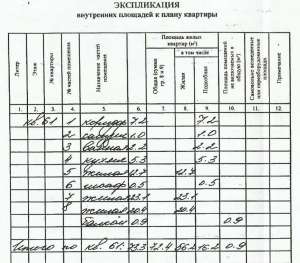 ЭКСПЛИКАЦИЯ
внутренних площадей к плану квартиры
Литер
Этаж
№ квартиры
№ частей помещения
Назначение частей помещения
Общая (сумма гр. 8 и 9)
Площадь жилых квартир (м²)
в том числе
Жилая
Подсобная
Площадь помещений не включенных в общую (м²)
Самовольно возведенная или переоборудованная площадь
Примечание
1. 2. 3. 4. 5. 6. 7. 8. 9. 10. 11. 12.
кв. 61 1 коридор 7.2 7.2
2 санузел 1.0 1.0
3 ванная 2.2 2.2
4 кухня 5.3 5.3
5 жилая 12.7 12.7
6 шкаф 0.5 0.5
7 жилая 23.1 23.1
8 жилая 20.4 20.4
балкон 0.9 0.9
Итого по кв. 61: 73.3 72.4 56.2 16.2 0.9